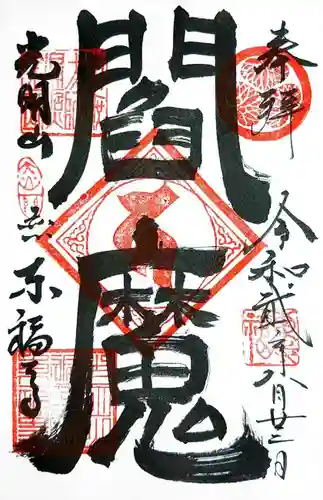 奉拝
令和貳年八月廿二日
閻魔
光明山
東福寺